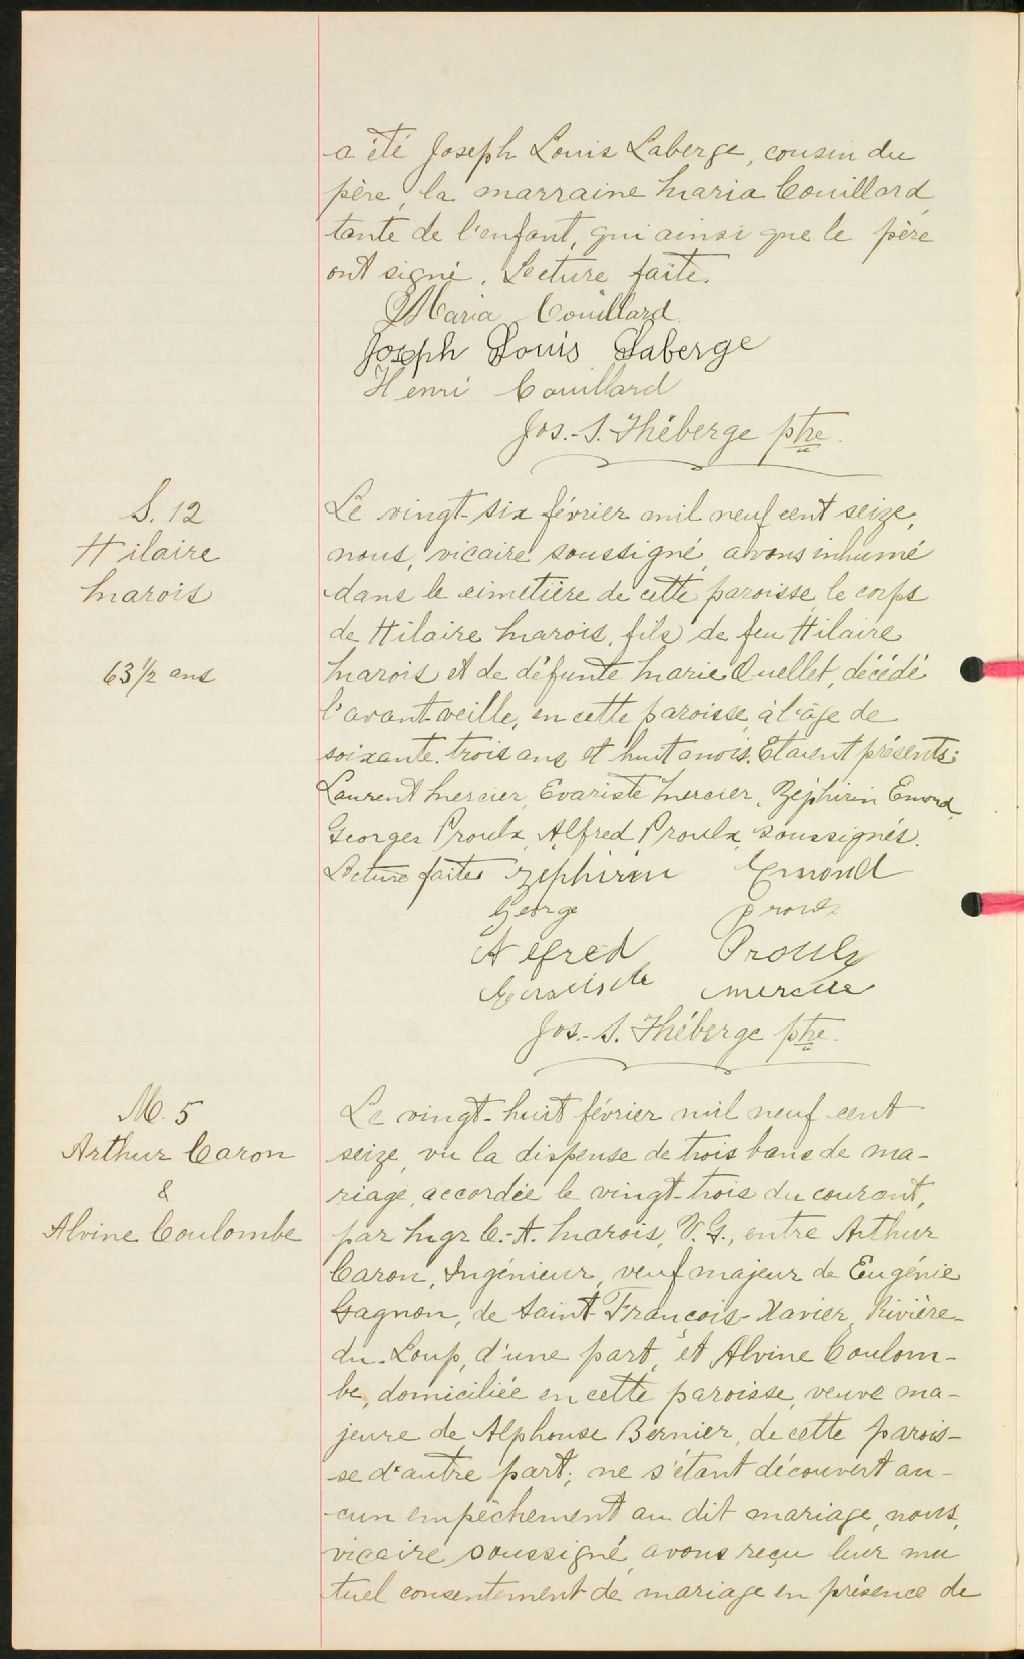 a été Joseph Louis Laberge, cousin du
père, la marraine Maria Couillard,
tante de l'enfant, qui ainsi que le père
ont signé. Lecture faite.
Maria Couillard
Joseph Louis Laberge
Henri Couillard
Jos.-S. Théberge ptre.
S. 12
Hilaire
Marois
63 1/2 ans
Le vingt-six février mil neuf cent seize,
nous, vicaire soussigné, avons inhumé
dans le cimetière de cette paroisse, le corps
de Hilaire Marois, fils de feu Hilaire
Marois et de défunte Marie Ouellet, décédé
l'avant-veille, en cette paroisse, à l'âge de
soixante-trois ans et huit mois. Étaient présents:
Laurent Mercier, Evariste Mercier, Zéphirin Emond,
Georges Proulx, Alfred Proulx, soussignés.
Lecture faite. Zéphirin Emond
George Proulx
Alfred Proulx
Mercier
Jos.-S. Théberge ptre.
M. 5
Arthur Caron
&
Alvine Coulombe
Le vingt-huit février mil neuf cent
seize, vu la dispense de trois bans de ma-
riage, accordée le vingt-trois du courant,
par Mgr C.-A. Marois, V.G., entre Arthur
Caron, Ingénieur, veuf majeur de Eugénie
Gagnon, de Saint-François-Xavier, Rivière-
du-Loup, d'une part, et Alvine Coulom-
be, domiciliée en cette paroisse, veuve ma-
jeure de Alphonse Bernier, de cette parois-
se d'autre part; ne s'étant découvert au-
cun empêchement au dit mariage, nous,
vicaire, soussigné, avons reçu leur mu
tuel consentement de mariage en présence de